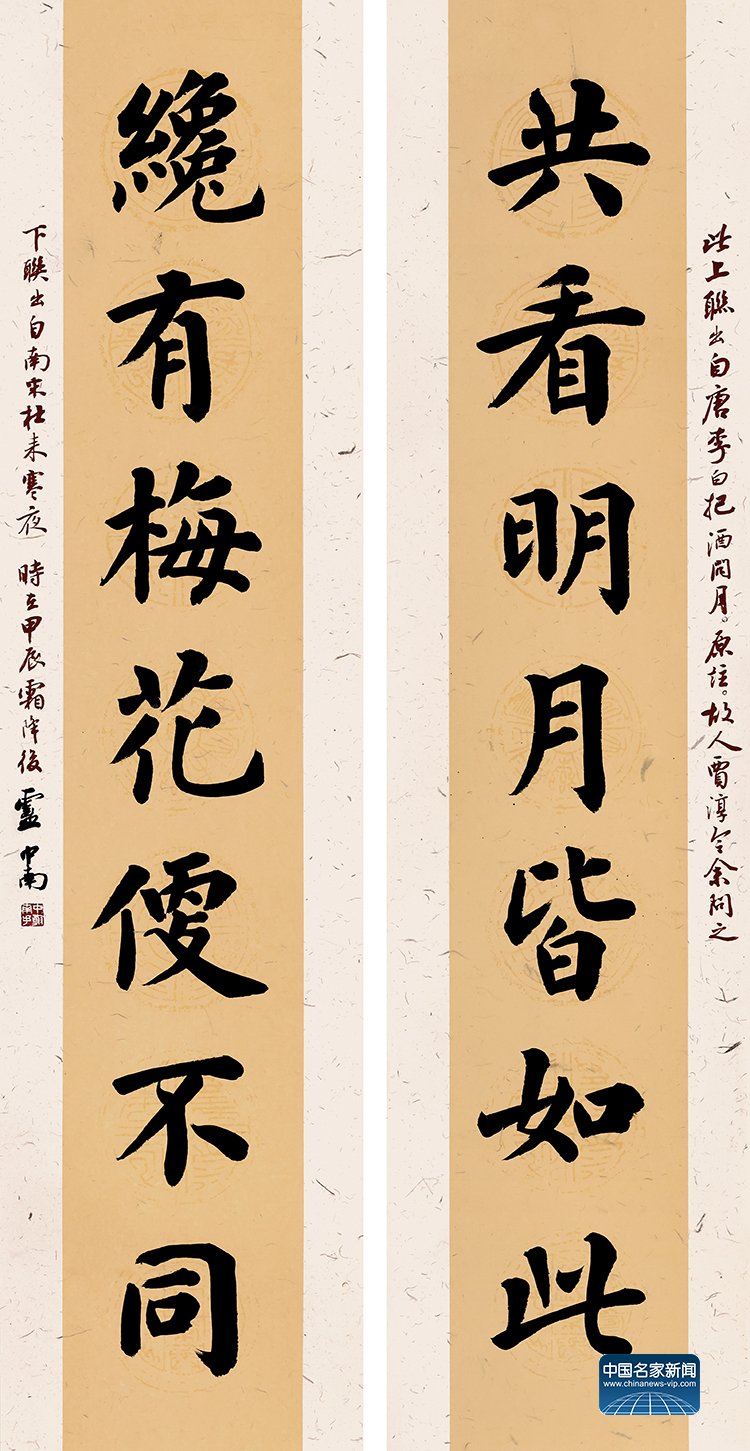 共看明月皆如此
此上聯出自唐李白把酒問月。原註。故人賈淳令余問之
纔有梅花便不同
下聯出自南宋杜耒寒夜 時在甲辰霜降後 盧中南
中国名家新闻
www.chinanews-vip.com